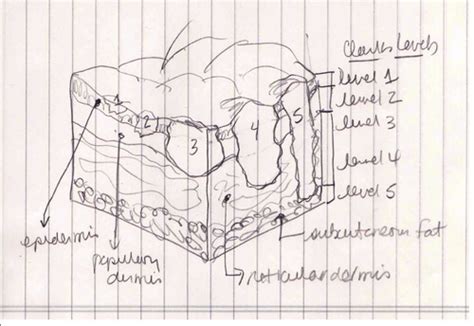 Clarks Levels
level 1
level 2
level 3
level 4
level 5
1
2
3
4
5
epidermis
papillary
dermis
reticular dermis
subcutaneous fat